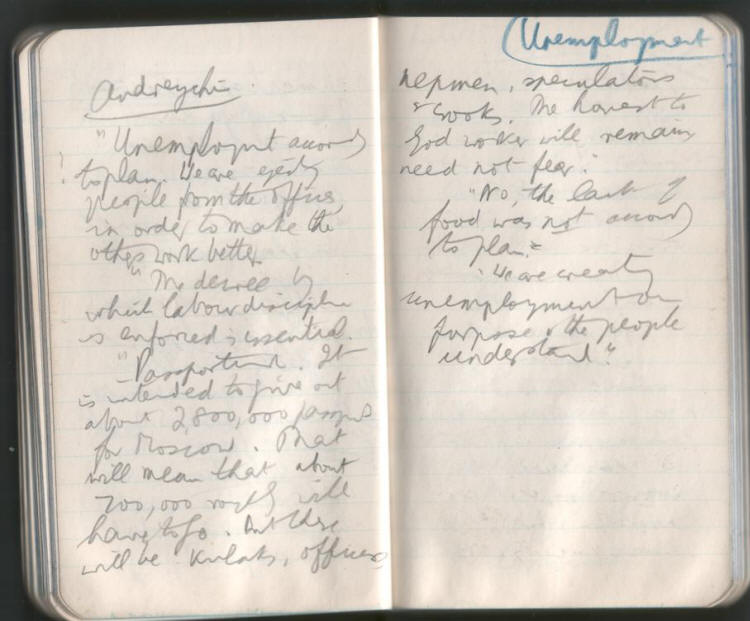 Andreychin.
"Unemploymt accordg
! to plan. We are ejectg
people from the offices,
in order to make the
others work better.
"The decree by
which labour discipline
is enforced is essential.
"Passportism. It
is intended to give out
about 2,800,000 passpts
for Moscow. That
will mean that about
700,000 roughly will
have to go. But these
will be Kulaks, officers,
Unemployment
nepmen, speculators
& crooks. The honest to
God worker will remain,
need not fear."
"No, the lack of
food was not accordg
to plan."
"We are creatg
unemployment on
purpose & the people
understand."